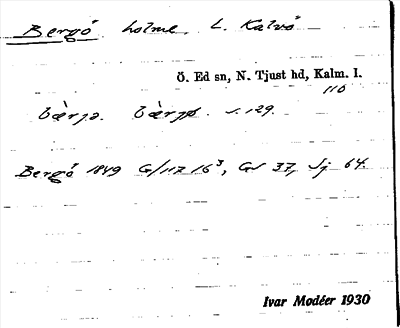 Bergö holme, L. Kalvö
Ö. Ed sn, N. Tjust hd, Kalm. l.
110
bærjə. bærjø. s. 129.
Bergö 1849 G/117 16³, Gs 37, Sj 64.
Ivar Modéer 1930